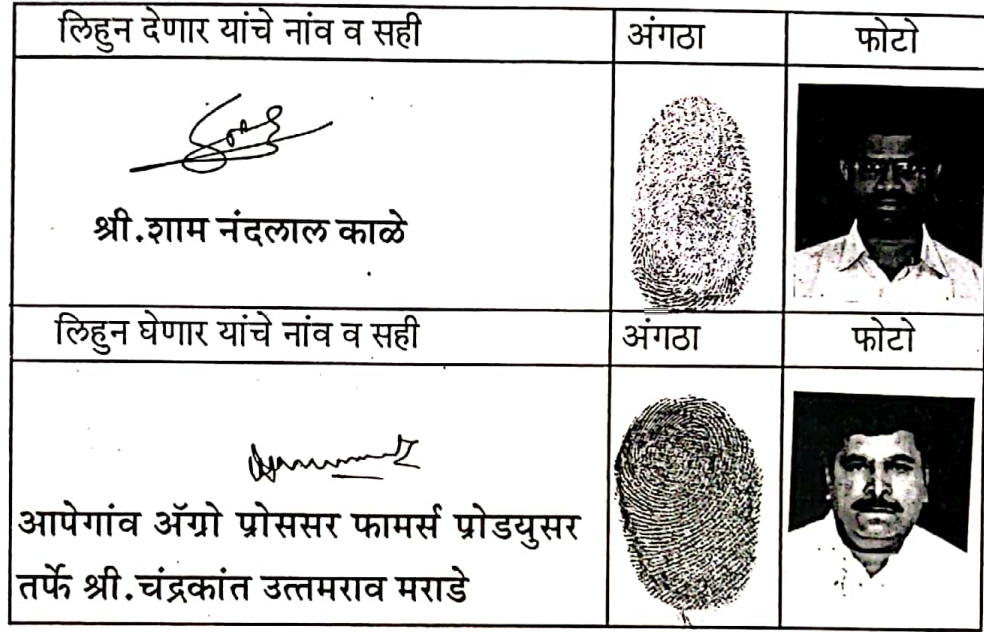 लिहुन देणार यांचे नांव व सही अंगठा फोटो
श्री.शाम नंदलाल काळे
लिहुन घेणार यांचे नांव व सही अंगठा फोटो
आपेगांव ॲग्रो प्रोससर फामर्स प्रोडयुसर
तर्फे श्री.चंद्रकांत उत्तमराव मराडे